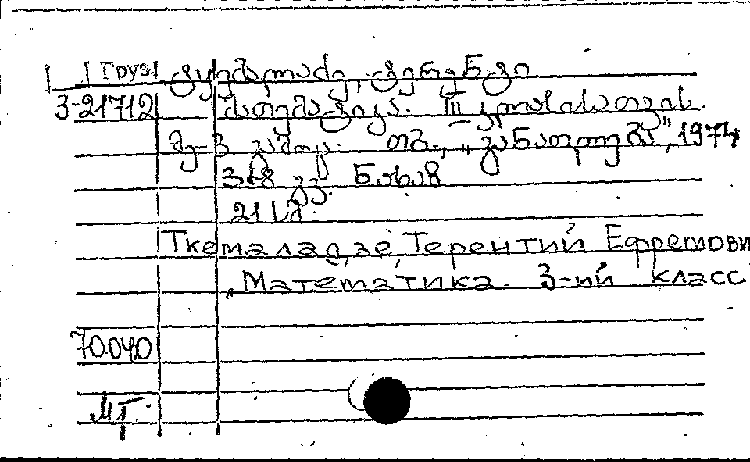 Груз. ტყემალაძე, ტერენტი
3-21712 მათემატიკა. III კლასისათვის.
მე-3 გამოც. თბ., „განათლება", 1974
318 გვ. ნახაზ
21 სმ.
Ткемаладзе, Терентий Ефремови
Математика. 3-ий класс
70.040
МГ.